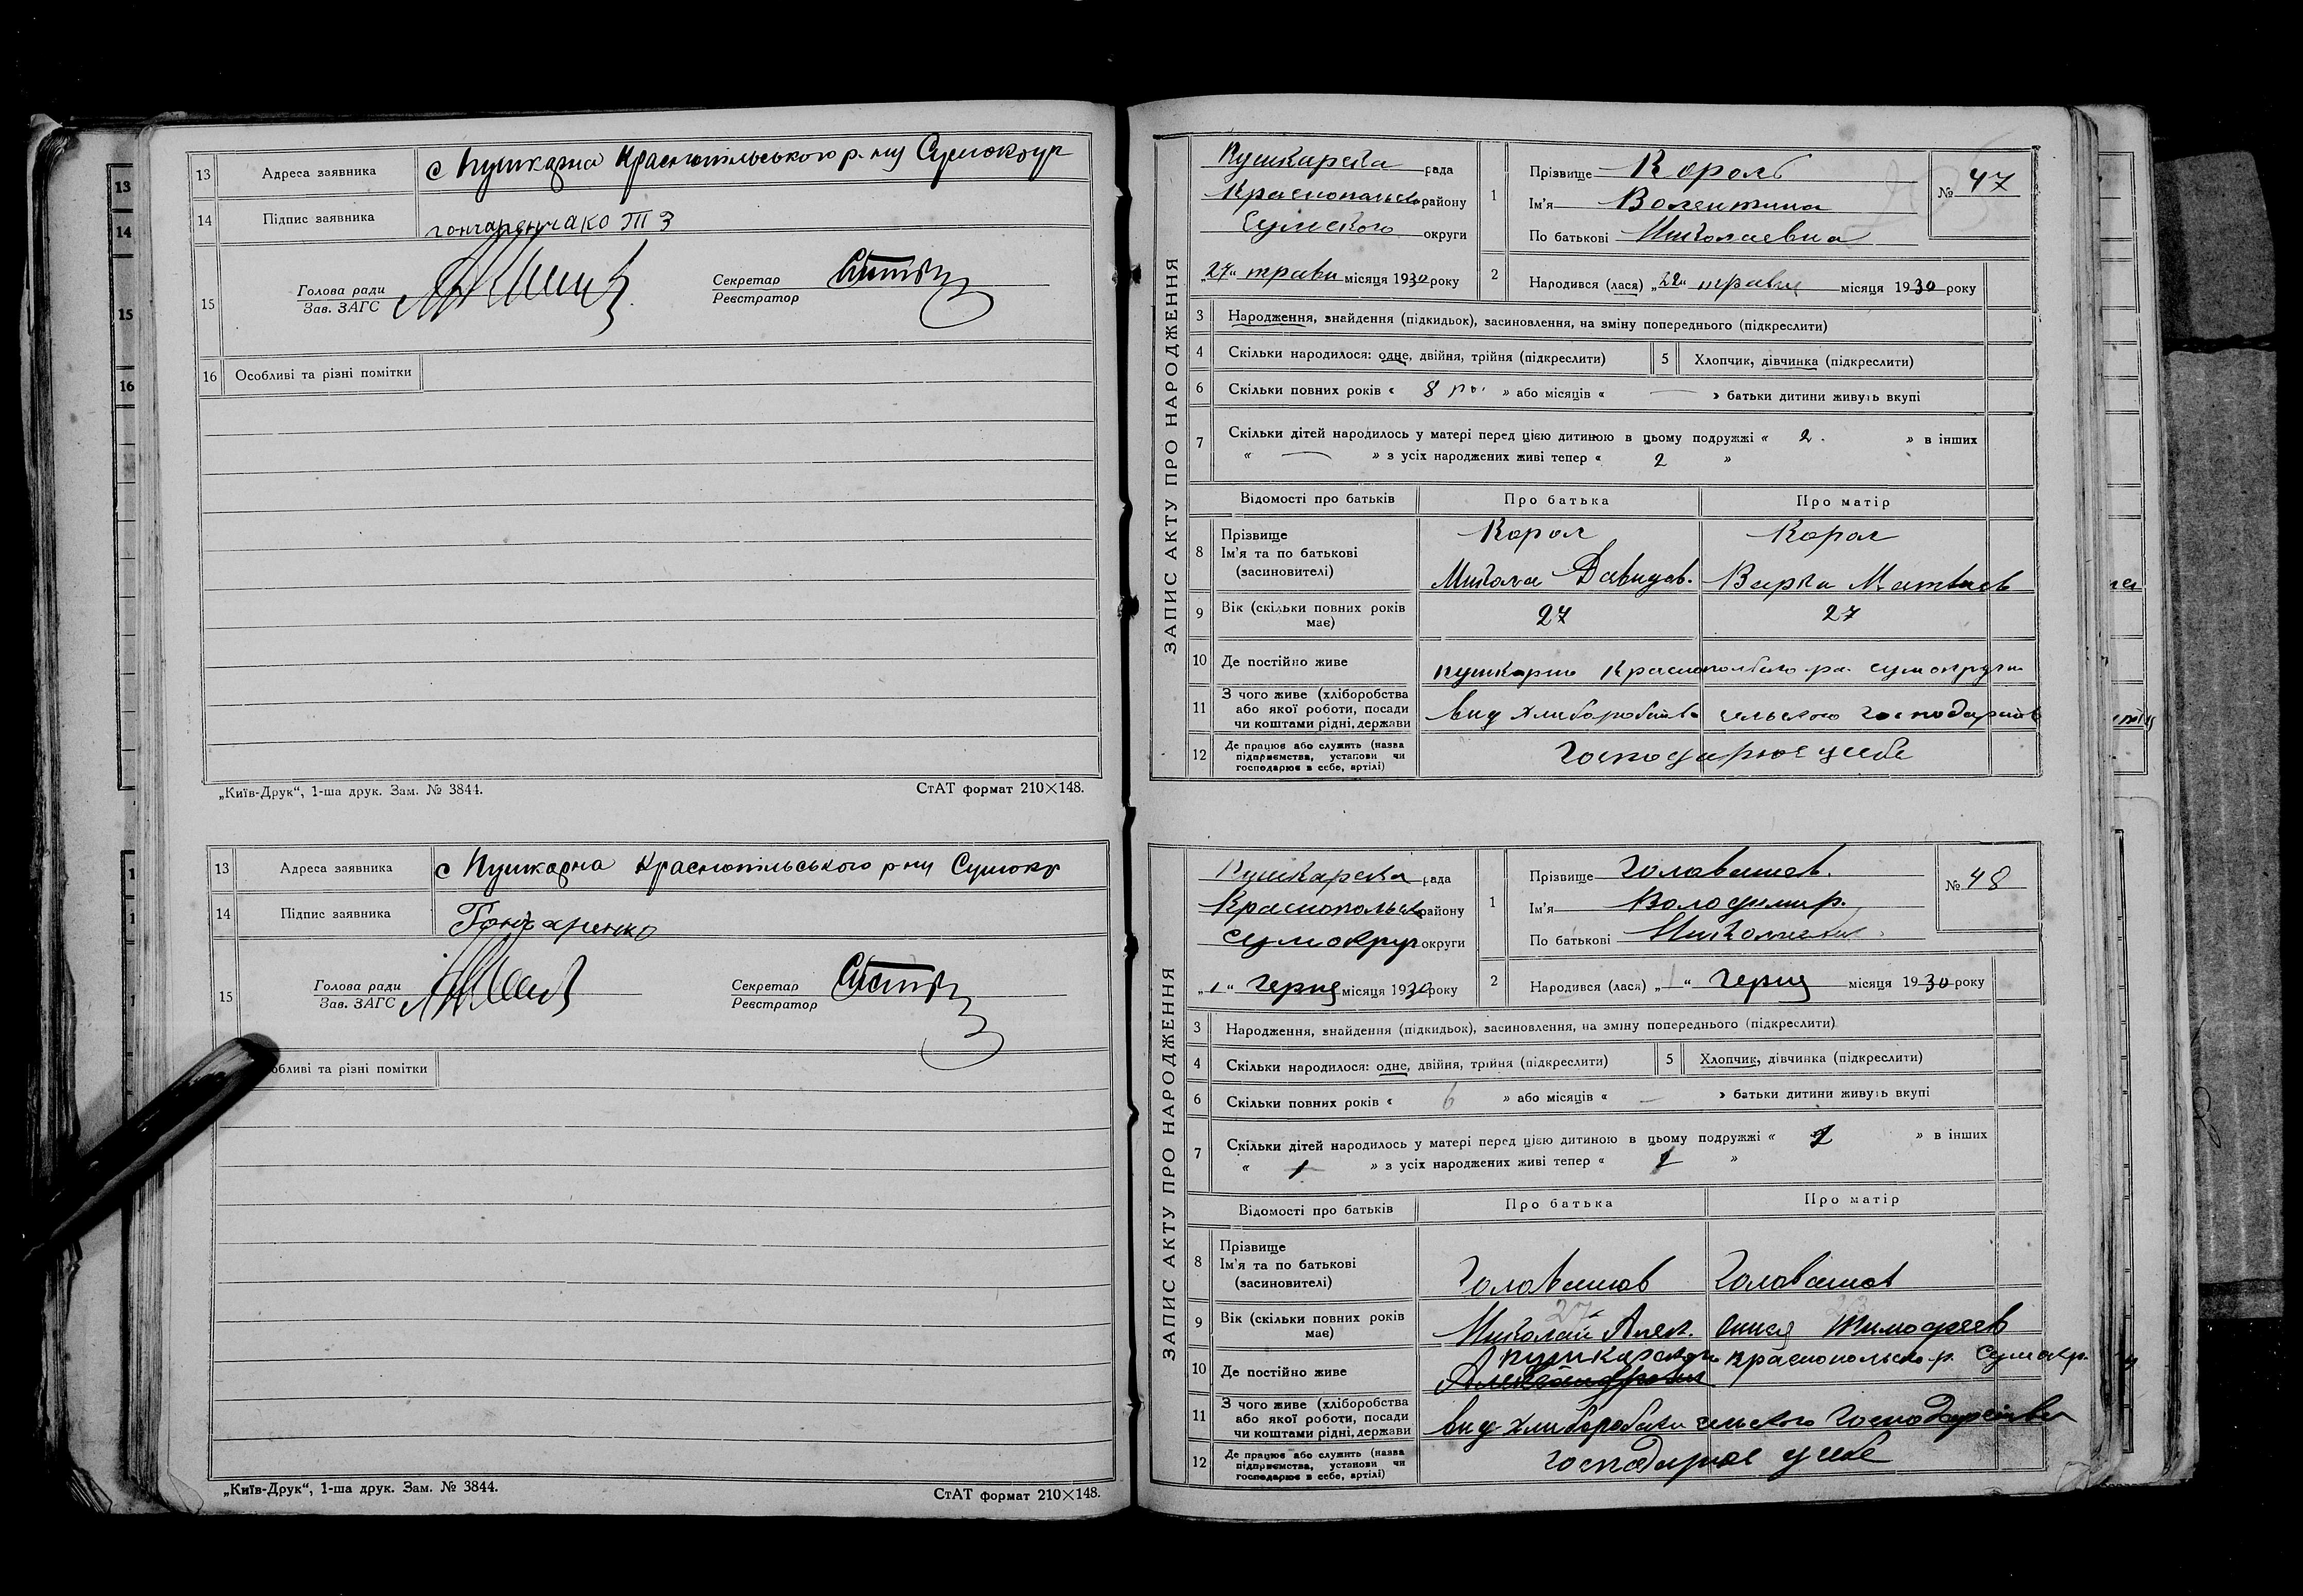 13 Адреса заявника с Пушкарна Краснопільського р. ну Сумокруг
14 Підпис заявника гончаренчако ТЗ
15 Голова ради
Зав. ЗАГС
Секретар
Реєстратор
16 Особливі та різні помітки
„Київ-Друк“, 1-ша друк. Зам. № 3844. СтАТ формат 210×148.
13 Адреса заявника с Пушкарна Краснопільського р ну Сумокр
14 Підпис заявника Гончаренко
15 Голова ради
Зав. ЗАГС
Секретар
Реєстратор
обливі та різні помітки
„Київ-Друк“, 1-ша друк. Зам. № 3844. СтАТ формат 210×148.
ЗАПИС АКТУ ПРО НАРОДЖЕННЯ
Пушкарска рада
Краснопольск району
Сумского округи
„27“ травн місяця 1930 року
1 Прізвище Король
Ім'я Волентина
По батькові Николаевна
№ 47
2 Народився (лася) „22“ травня місяця 1930 року
3 Народження, знайдення (підкидьок), засиновлення, на зміну попереднього (підкреслити)
4 Скільки народилося: одне, двійня, трійня (підкреслити) 5 Хлопчик, дівчинка (підкреслити)
6 Скільки повних років « 8 ро. » або місяців « — » батьки дитини живуть вкупі
7 Скільки дітей народилось у матері перед цією дитиною в цьому подружжі « 2. » в інших
« — » з усіх народжених живі тепер « 2 »
Відомості про батьків Про батька Про матір
8 Прізвище
Ім'я та по батькові
(засиновителі)
Корол Корол
Микола Давидов. Варка Матвиев
9 Вік (скільки повних років має) 27 27
10 Де постійно живе пушкарно Краснополского ра. сумокруги
11 З чого живе (хліборобства
або якої роботи, посади
чи коштами рідні, держави
вид хлиборобства сельского господарства
12 Де працює або служить (назва
підприємства, установи чи
господарює в себе, артілі)
господарює усебе
ЗАПИС АКТУ ПРО НАРОДЖЕННЯ
Пушкарска рада
Краснопольск району
сумокруг округи
„1“ черня місяця 1930 року
1 Прізвище Головашов.
Ім'я Володимир.
По батькові
№ 48
2 Народився (лася) „1“ черня місяця 1930 року
3 Народження, знайдення (підкидьок), засиновлення, на зміну попереднього (підкреслити)
4 Скільки народилося: одне, двійня, трійня (підкреслити) 5 Хлопчик, дівчинка (підкреслити)
6 Скільки повних років « 6 » або місяців « — » батьки дитини живуть вкупі
7 Скільки дітей народилось у матері перед цією дитиною в цьому подружжі « » в інших
« » з усіх народжених живі тепер « »
Відомості про батьків Про батька Про матір
8 Прізвище
Ім'я та по батькові
(засиновителі)
Головашов Головашов
9 Вік (скільки повних років має) 27
Николай Алел. Тимофеев
10 Де постійно живе краснопольско р. Сумокр.
11 З чого живе (хліборобства
або якої роботи, посади
чи коштами рідні, держави
вид хлиборобства сельского господарства
12 Де працює або служить (назва
підприємства, установи чи
господарює в себе, артілі)
господарює усебе